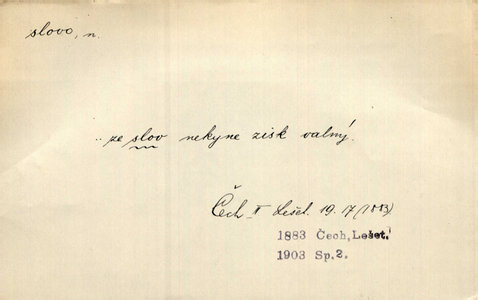 slovo, n.
.. ze slov nekyne zisk valný.
Čech II Lešet. 19. 17 (1883)
1883 Čech, Lešet.
1903 Sp. 2.